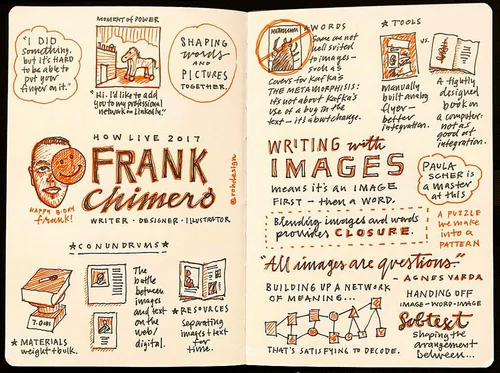 "I DID
something,
but it's HARD
to be able to
put your
finger on it."
MOMENT OF POWER
"Hi. I'd like to add
you to my professional
network on LinkedIn."
SHAPING
WORDS
AND
PICTURES
TOGETHER.
HOW LIVE 2017
FRANK
Chimero
WRITER • DESIGNER • ILLUSTRATOR
@rohdesign
HAPPY B-DAY
Frank!
*CONUNDRUMS*
*MATERIALS
weight + bulk.
The
battle
between
images
and text
on the
web/
digital.
*RESOURCES
Separating
images & text
for
time.
*WORDS
Some are not
well suited
to images –
such as
Covers for Kafka's
THE METAMORPHOSIS:
it's not about Kafka's
use of a bug in the
text – it's about change.
*TOOLS
VS.
Manually
built analog
flyer –
better
integration.
A tightly
designed
book on
a computer:
not as
good at
integration.
WRITING with
IMAGES
means it's an IMAGE
FIRST – then a WORD.
PAULA
SCHER is
a master
at this
Blending images and words
provides CLOSURE.
A PUZZLE
we make
into a
PATTERN
"All images are questions."
– AGNES VARDA
BUILDING UP A NETWORK
OF MEANING...
THAT'S SATISFYING TO DECODE.
HANDING OFF
IMAGE-WORD-IMAGE
Subtext
Shaping the
arrangement
between...